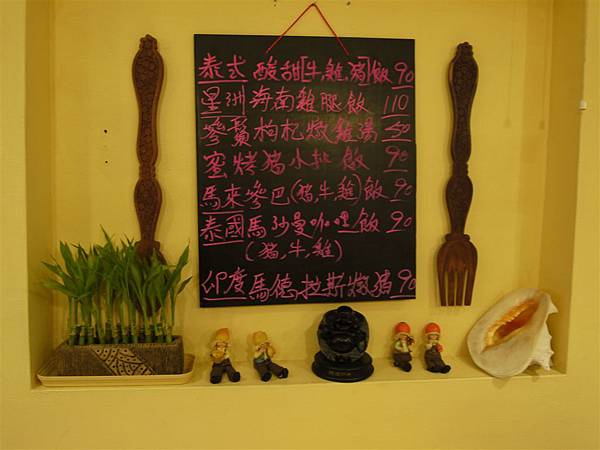 泰式酸甜[牛,雞,豬]飯 90
星洲海南雞腿飯 110
參鬚枸杞燉雞湯 50
蜜烤豬小扒飯 90
馬來參巴(豬,牛,雞)飯 90
泰國馬沙曼咖哩飯 90
(豬,牛,雞)
印度馬德拉斯燉豬 90